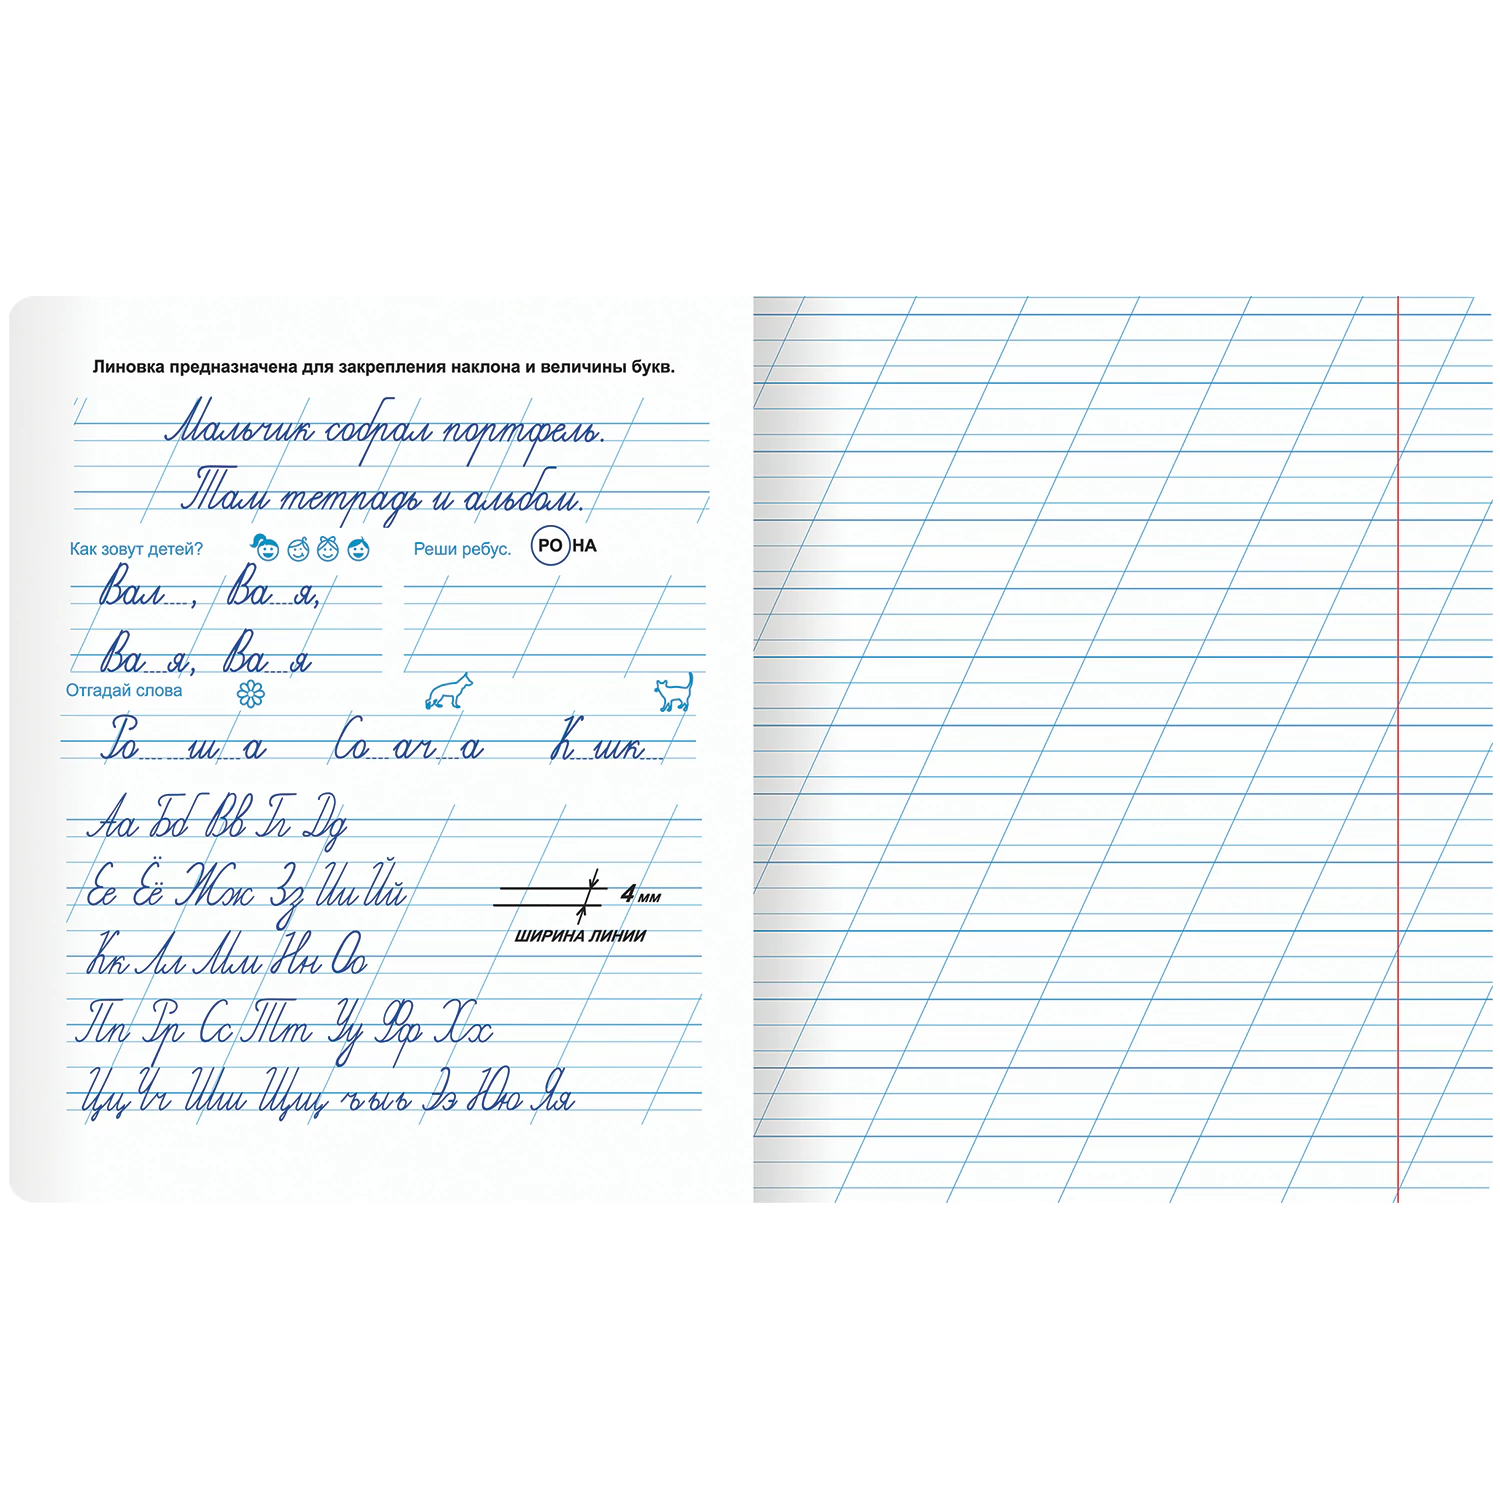 Линовка предназначена для закрепления наклона и величины букв.
Мальчик собрал портфель.
Там тетрадь и альбом.
Как зовут детей?
Реши ребус. РО НА
Вал__, Ва__я,
Ва__я, Ва__я
Отгадай слова
Ро____ш__а Со__ач__а К__шк__
Аа Бб Вв Гг Дд
Ее Ёё Жж Зз Ии Йй
4 мм
ШИРИНА ЛИНИИ
Кк Лл Мм Нн Оо
Пп Рр Сс Тт Уу Фф Хх
Цц Чч Шш Щщ ъыь Ээ Юю Яя